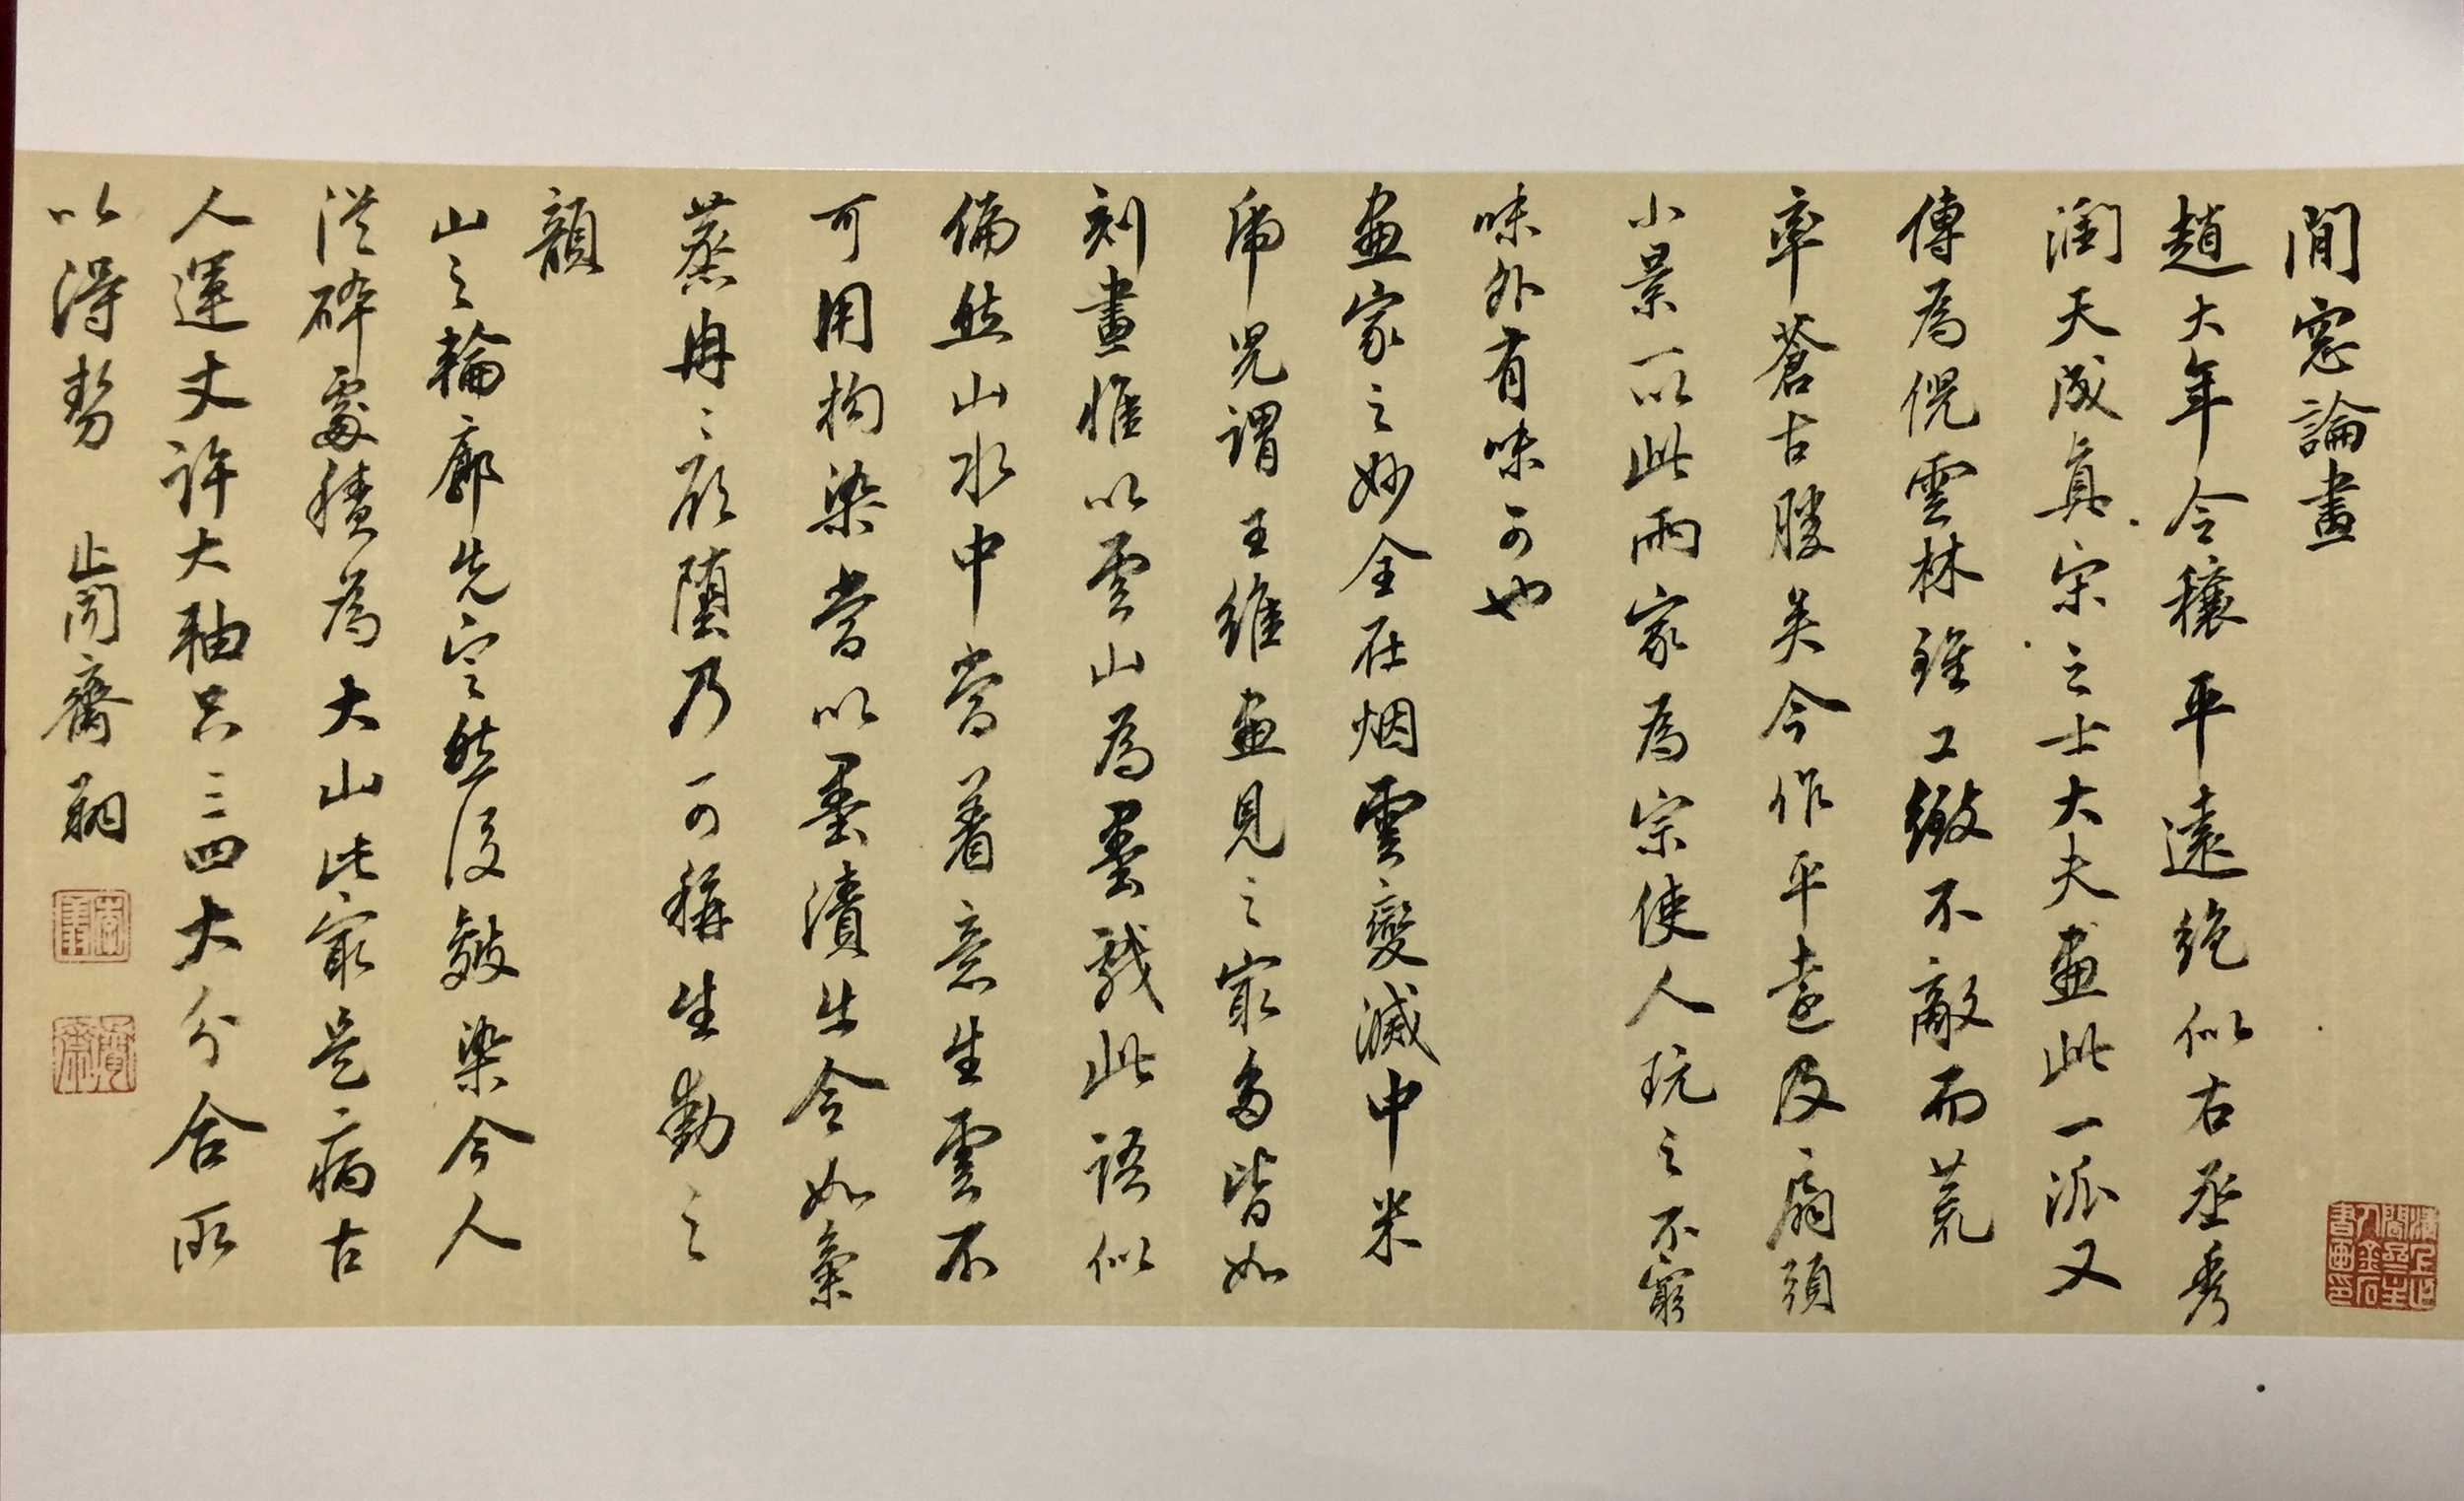 閒窓論畫
趙大年令穰平遠絶似右丞秀
潤天成真宋之士大夫畫此一派又
傳為倪雲林雖工緻不敵而荒
率蒼古勝矣今作平遠及扇頭
小景一以此兩家為宗使人玩之不窮
味外有味可也
畫家之妙全在烟雲變滅中米
虎兒謂王維畫見之最多皆如
刻畫惟以雲山為墨戲此語似
偏然山水中當着意生雲不
可用拘染當以墨漬出令如氣
蒸冉冉欲墮乃可稱生動之
韻
山之輪廓先定然後皴染今人
從碎處積為大山此最是病古
人運大軸只三四大分合所
以得勢 止閒齋翔